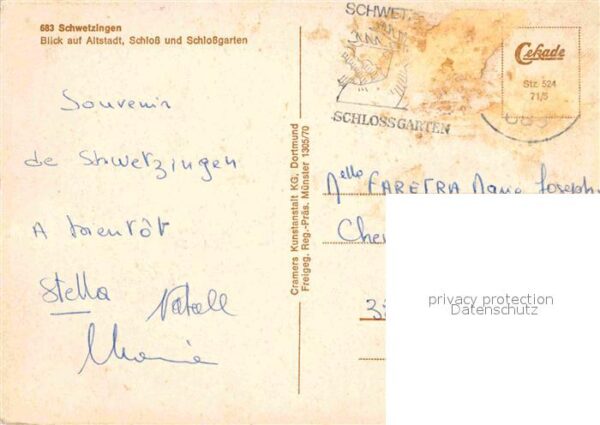 683 Schwetzingen
Blick auf Altstadt, Schloß und Schloßgarten
SCHWET
SCHLOSSGARTEN
Cekade
Stz 524
71/5
683
Souvenir
de Schwetzingen
A bientôt
Stella
Cramers Kunstanstalt KG, Dortmund
Freigeg. Reg.-Präs. Münster 1305/70
Melle FARETRA Marie Joseph
Che
privacy protection
Datenschutz